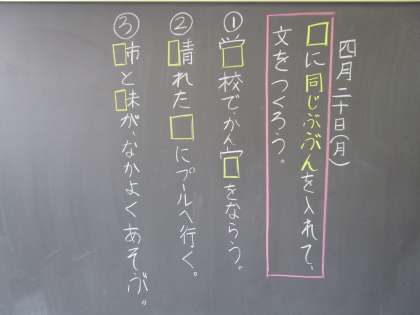 四月二十日(月)
□に同じぶぶんを入れて、
文をつくろう。
① ⺍冖□校で、かん宀□をならう。
② □青れた□にプールへ行く。
③ □市と□未が、なかよくあそぶ。